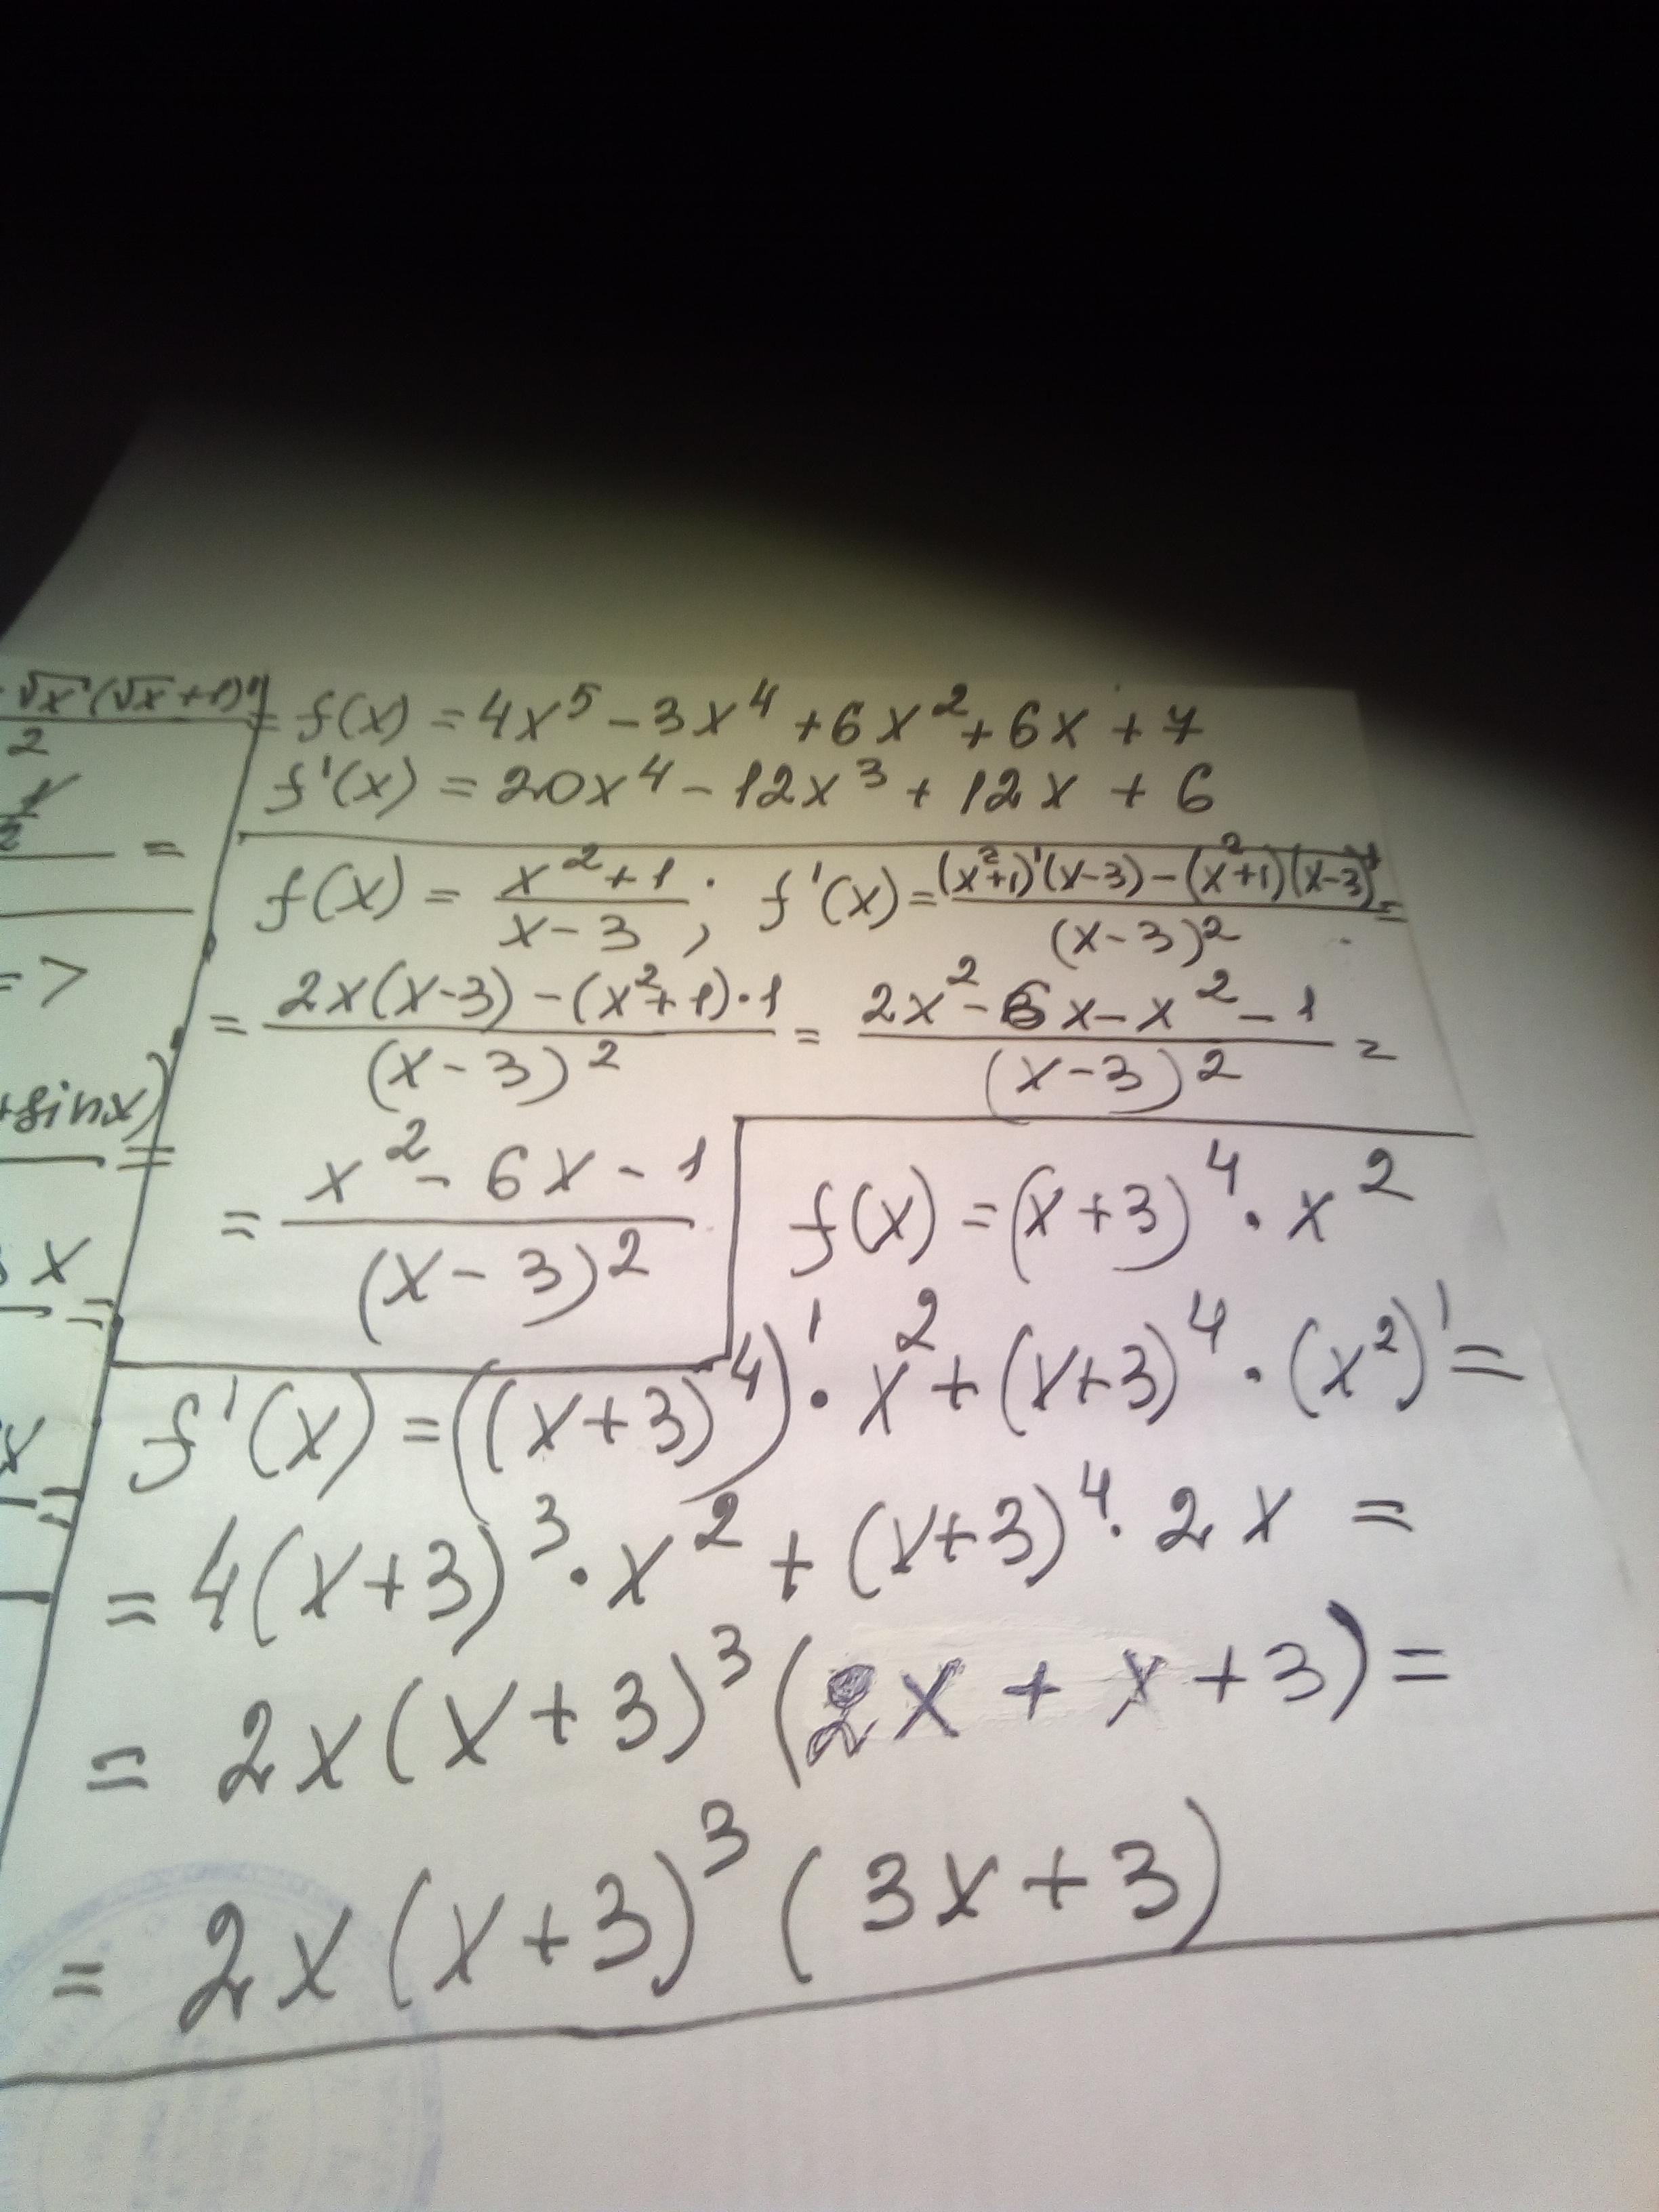 √x (√x + 1)'
2
=
=>
+sinx)
=
x
=
f(x) = 4x⁵ - 3x⁴ + 6x² + 6x + 7
f'(x) = 20x⁴ - 12x³ + 12x + 6
f(x) = (x² + 1)/(x - 3); f'(x) = ((x²+1)'(x-3) - (x²+1)(x-3)')/(x-3)² =
= (2x(x-3) - (x²+1)·1)/(x-3)² = (2x² - 6x - x² - 1)/(x-3)² =
= (x² - 6x - 1)/(x-3)²
f(x) = (x+3)⁴ · x²
f'(x) = ((x+3)⁴)' · x² + (x+3)⁴ · (x²)' =
= 4(x+3)³ · x² + (x+3)⁴ · 2x =
= 2x(x+3)³(2x + x + 3) =
= 2x(x+3)³(3x + 3)